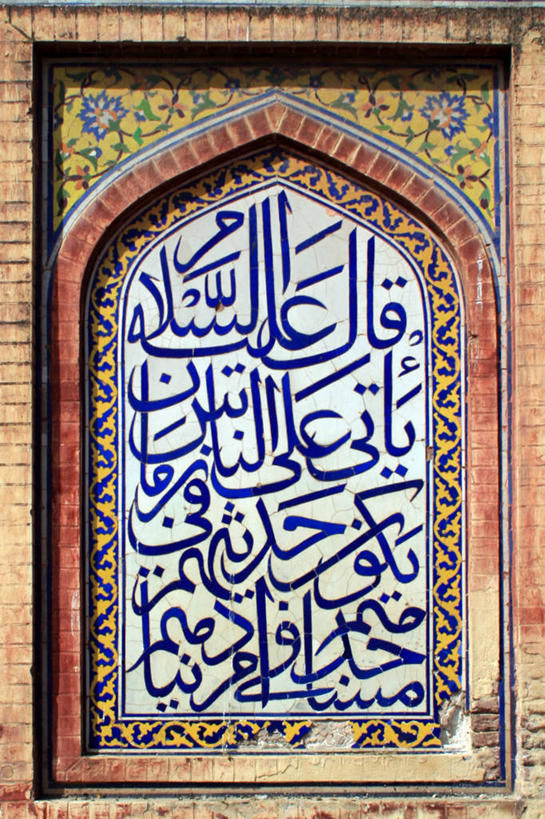 قال عليه السّلام
يأتى على الناس زمان
يكون حديثهم فى
مساجدهم فى امر دنياهم